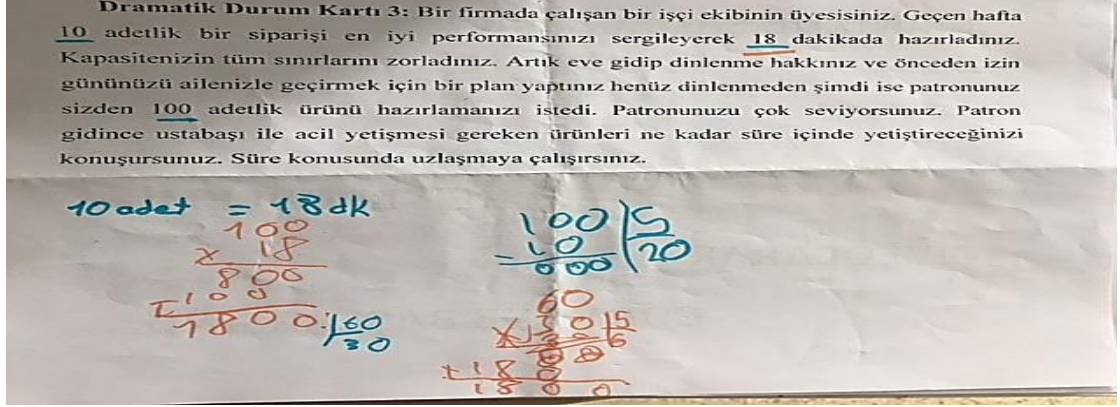 Dramatik Durum Kartı 3: Bir firmada çalışan bir işçi ekibinin üyesisiniz. Geçen hafta
10 adetlik bir siparişi en iyi performansınızı sergileyerek 18 dakikada hazırladınız.
Kapasitenizin tüm sınırlarını zorladınız. Artık eve gidip dinlenme hakkınız ve önceden izin
gününüzü ailenizle geçirmek için bir plan yaptınız henüz dinlenmeden şimdi ise patronunuz
sizden 100 adetlik ürünü hazırlamanızı istedi. Patronunuzu çok seviyorsunuz. Patron
gidince ustabaşı ile acil yetişmesi gereken ürünleri ne kadar süre içinde yetiştireceğinizi
konuşursunuz. Süre konusunda uzlaşmaya çalışırsınız.
10 adet = 18 dk
100
x 18
800
100
1800 60
30
100 5
10 20
000
60
+ 18
1800